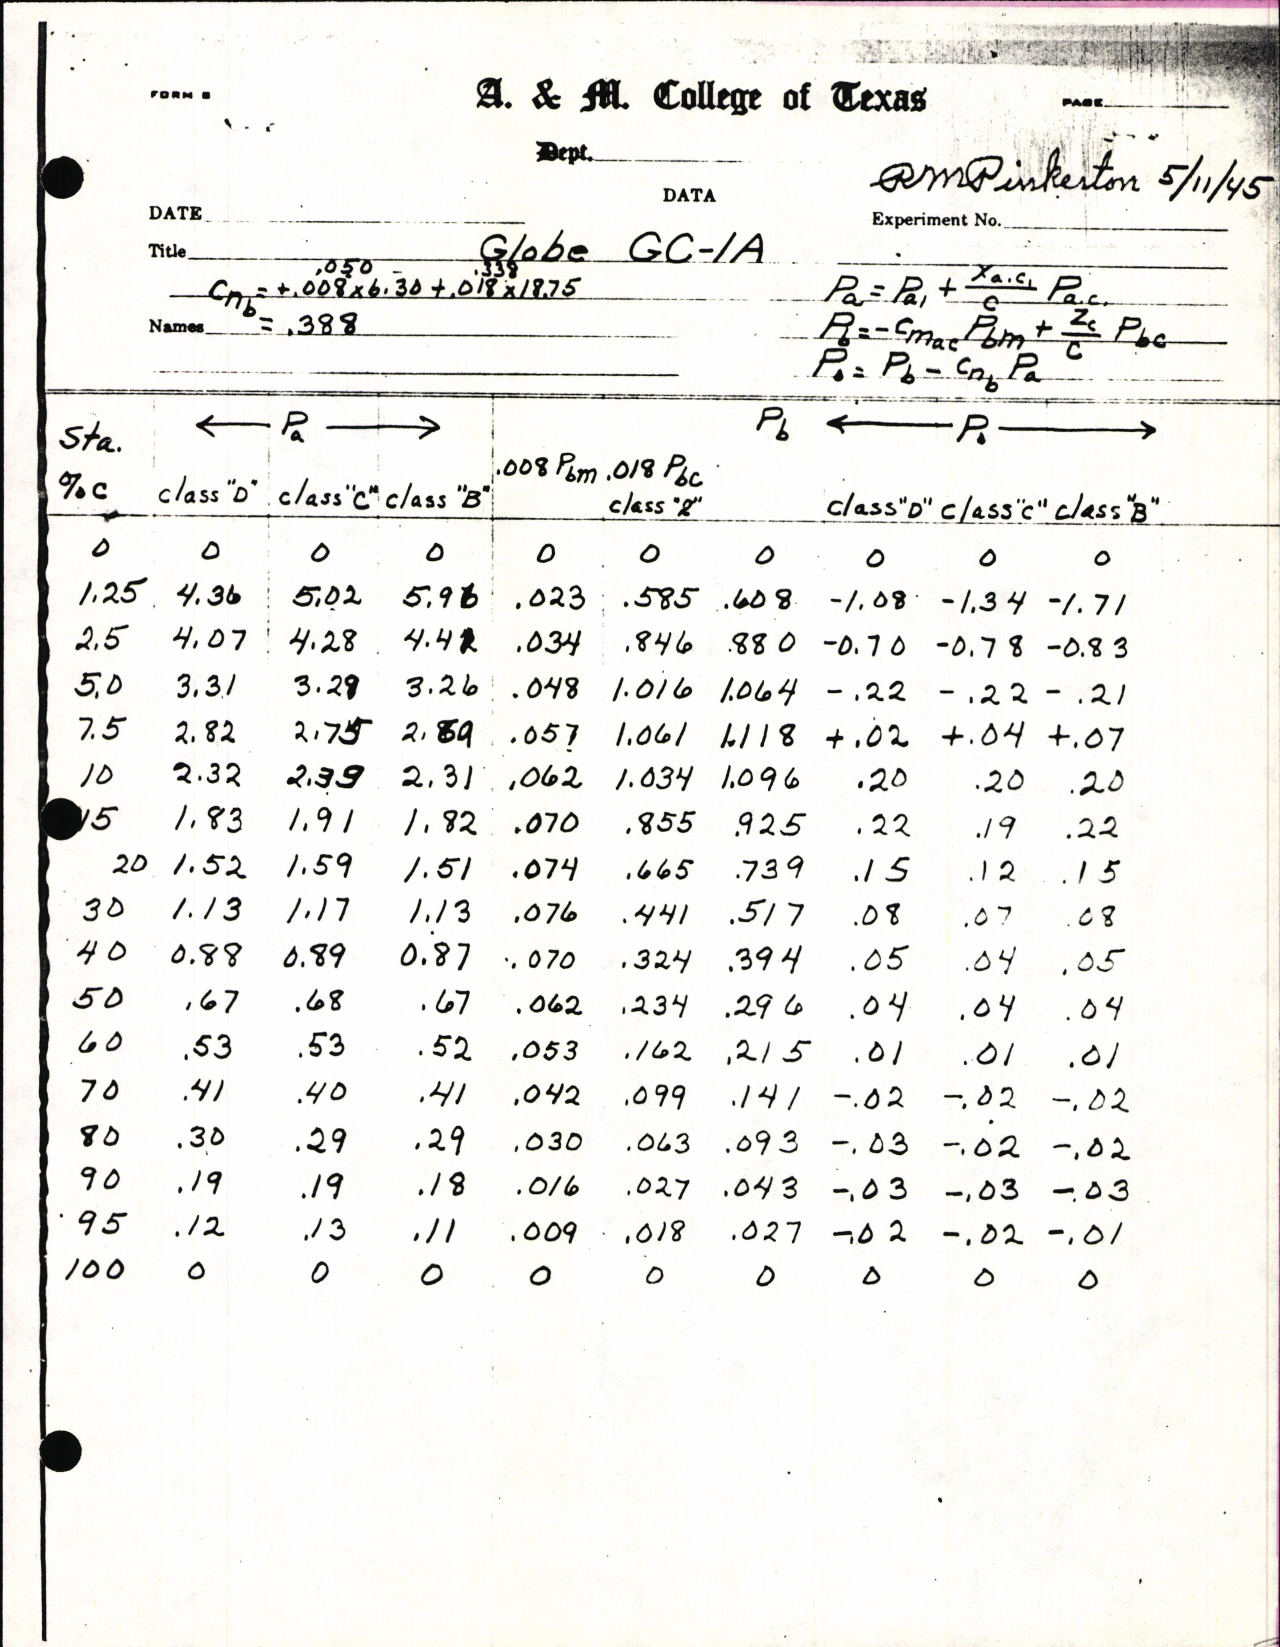 FORM B
A. & M. College of Texas
PAGE
Dept.
RMPinkerton 5/11/45
DATA
DATE
Experiment No.
Title Globe GC-1A
.050 .338
Cnb = +.008x6.30 +.018x18.75
Pa = Pa1 + xa.c./c Pa.c.
Names = .388
Pb = -Cmac Pbm + Zc/c Pbc
P0 = Pb - Cnb Pa
Sta. ← Pa → Pb ← P0 →
.008 Pbm .018 Pbc
%c class "D" class "C" class "B" class "2" class "D" class "C" class "B"
0 0 0 0 0 0 0 0 0 0
1.25 4.36 5.02 5.96 .023 .585 .608 -1.08 -1.34 -1.71
2.5 4.07 4.28 4.42 .034 .846 .880 -0.70 -0.78 -0.83
5.0 3.31 3.29 3.26 .048 1.016 1.064 -.22 -.22 -.21
7.5 2.82 2.75 2.69 .057 1.061 1.118 +.02 +.04 +.07
10 2.32 2.39 2.31 .062 1.034 1.096 .20 .20 .20
15 1.83 1.91 1.82 .070 .855 .925 .22 .19 .22
20 1.52 1.59 1.51 .074 .665 .739 .15 .12 .15
30 1.13 1.17 1.13 .076 .441 .517 .08 .07 .08
40 0.88 0.89 0.87 .070 .324 .394 .05 .04 .05
50 .67 .68 .67 .062 .234 .296 .04 .04 .04
60 .53 .53 .52 .053 .162 .215 .01 .01 .01
70 .41 .40 .41 .042 .099 .141 -.02 -.02 -.02
80 .30 .29 .29 .030 .063 .093 -.03 -.02 -.02
90 .19 .19 .18 .016 .027 .043 -.03 -.03 -.03
95 .12 .13 .11 .009 .018 .027 -.02 -.02 -.01
100 0 0 0 0 0 0 0 0 0